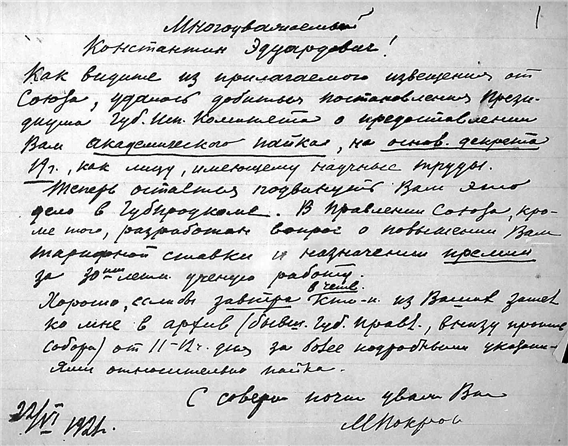 1
Многоуважаемый
Константин Эдуардович!
Как видите из прилагаемого извещения от
Союза, удалось добиться постановления Прези-
диума Губ. Исп. Комитета о предоставлении
Вам академического пайка, на основ. декрета
19 г., как лицу, имеющему научные труды.
Теперь остается подвинуть Вам это
дело в Губпродкоме. В Правлении Союза, кро-
ме того, разработан вопрос о повышении Вам
тарифной ставки и назначении премии
за 30 летн. ученую работу.
в четв.
Хорошо, если бы завтра кто-н. из Ваших зашел
ко мне в архив (бывш. Губ. Правл., внизу против
Собора) от 11-12 ч. дня за более подробными указани-
ями относительно пайка.
С соверш почт уваж Вас
22/VI 1921.
М Покров